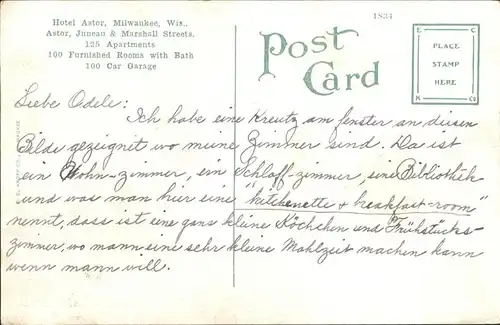 Hotel Astor, Milwaukee, Wis.,
Astor, Juneau & Marshall Streets.
125 Apartments
100 Furnished Rooms with Bath
100 Car Garage
1834
Post
Card
E C
PLACE
STAMP
HERE
K Co
Liebe Adele:
Ich habe eine Kreutz am fenster an diesen
Bilde gezeignet wo meine Zimmer sind. Da ist
ein Wohn-zimmer, ein Schlaff-zimmer, eine Bibliothek
und was man hier eine "kitchenette & breakfast-room"
nennt, dass ist eine ganz kleine Köchchen und Frühstücks-
zimmer, wo mann eine sehr kleine Mahlzeit machen kann
wenn mann will.